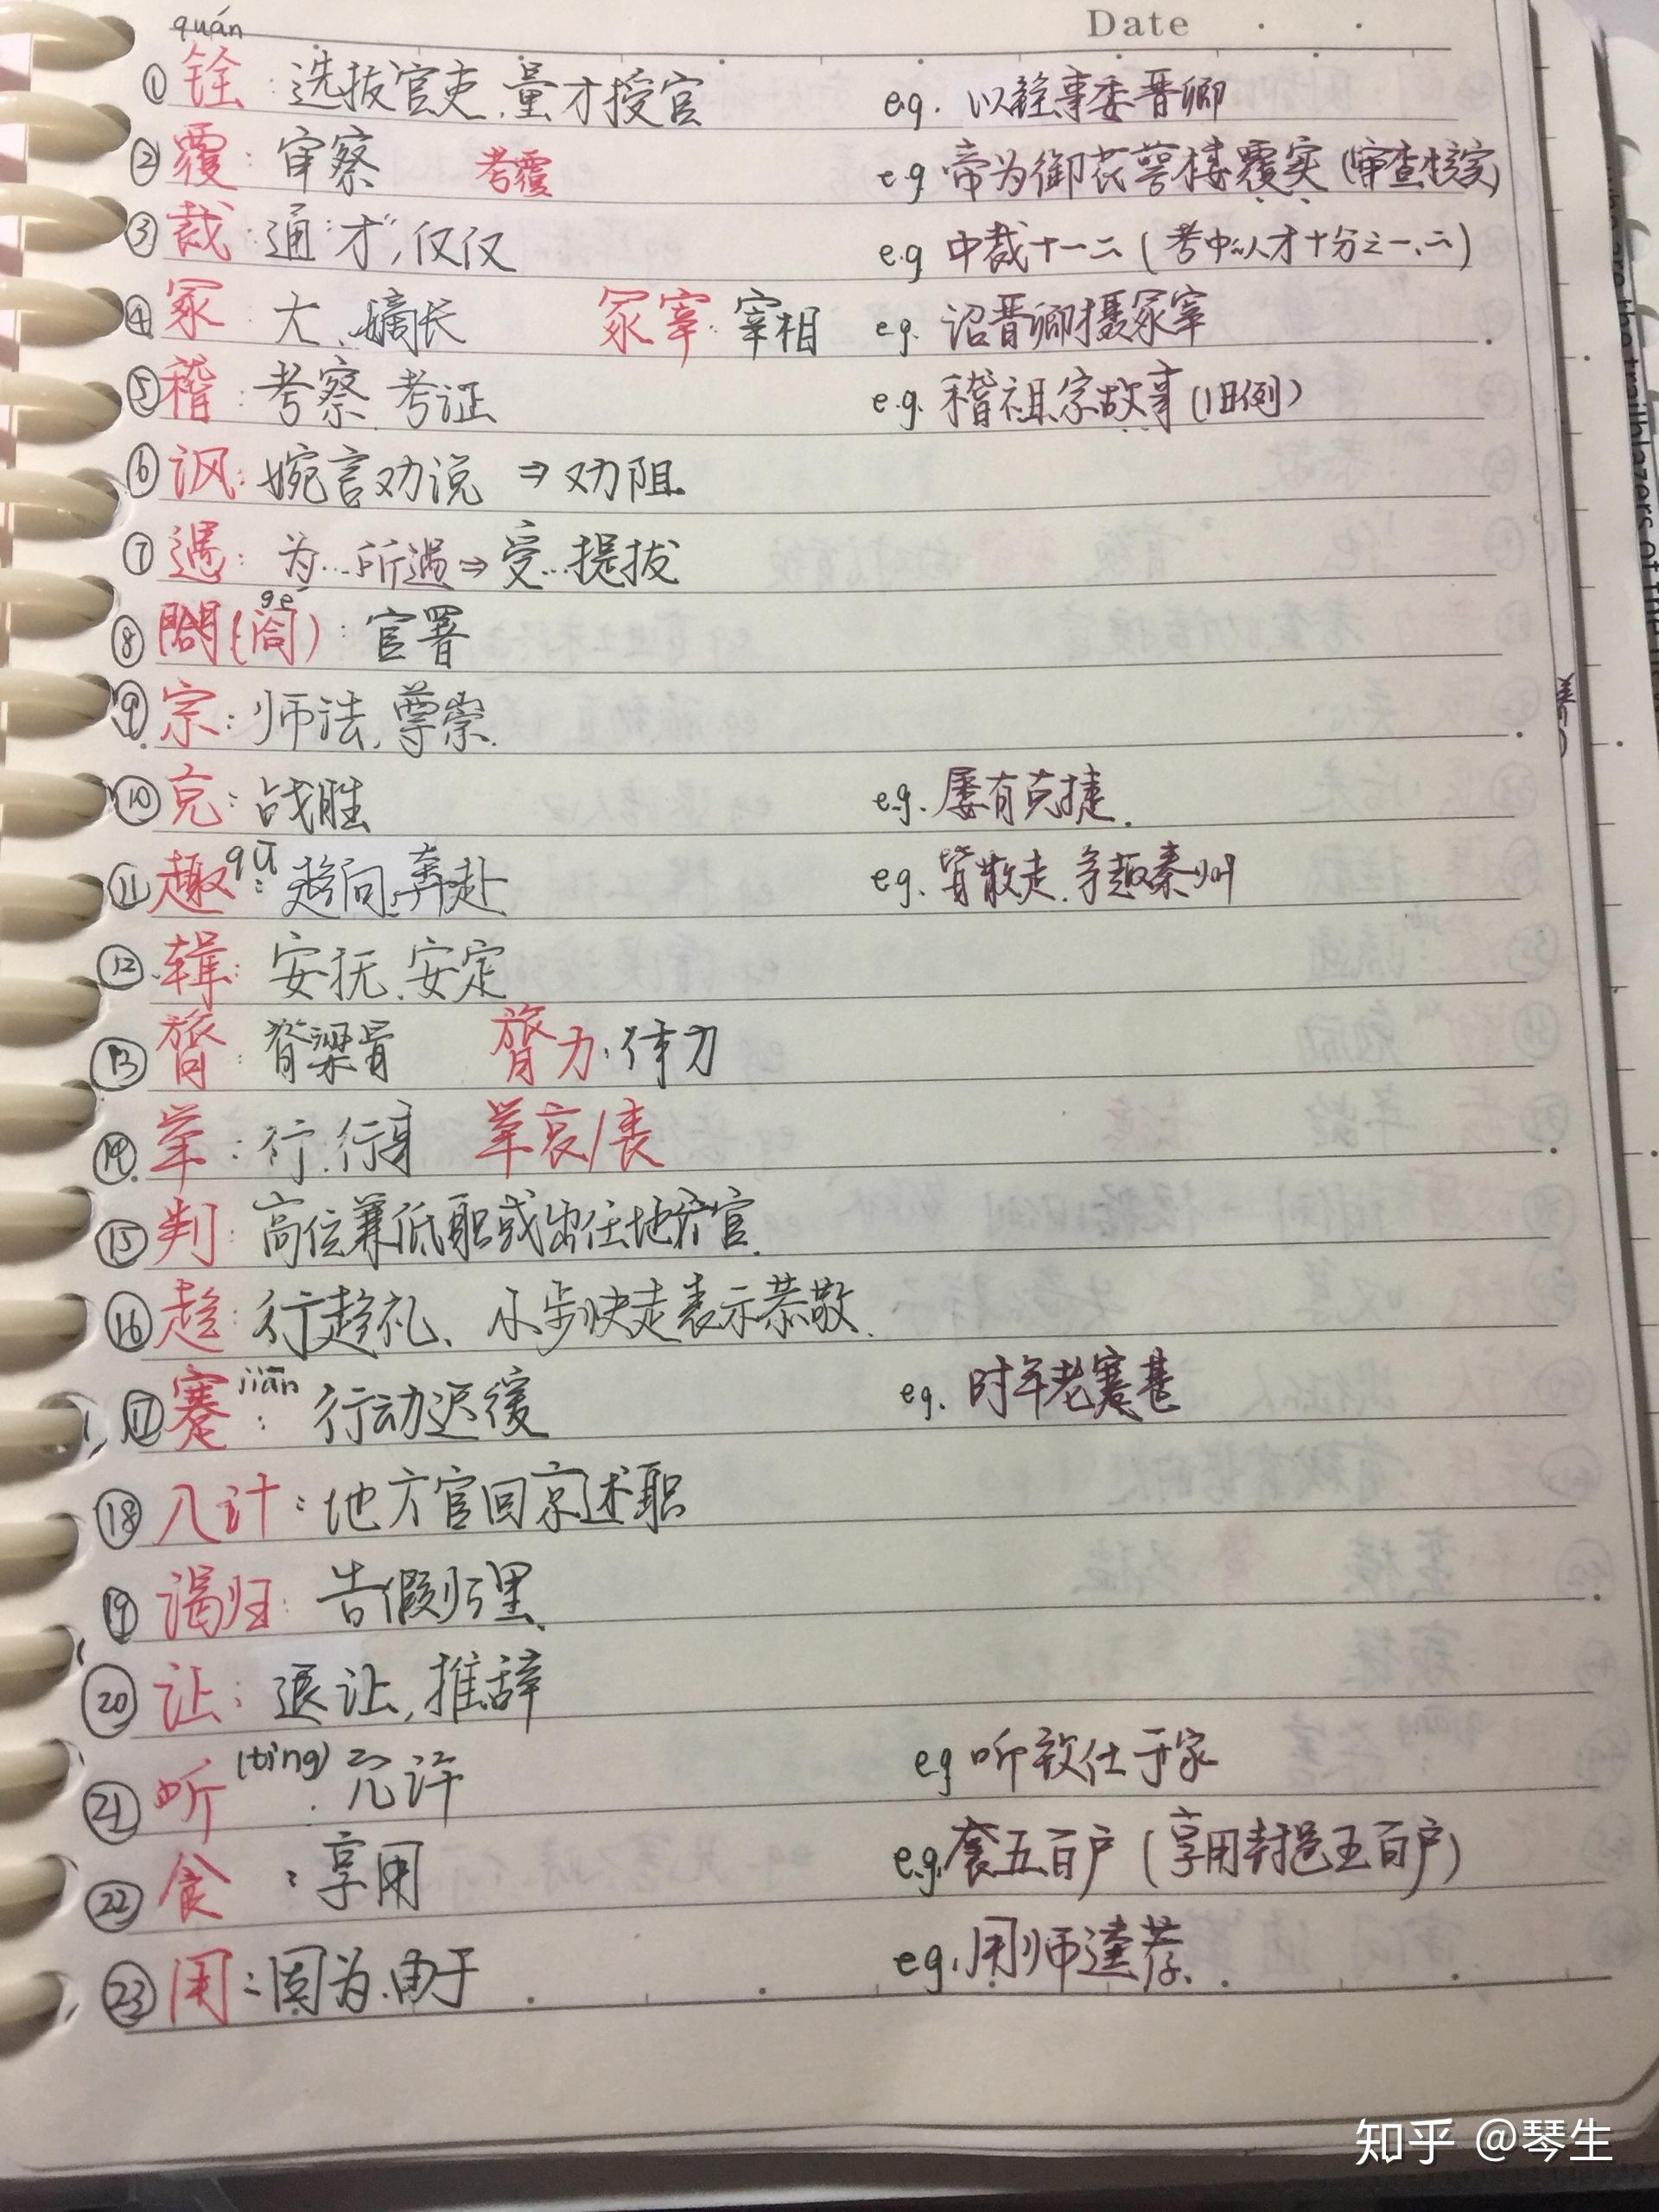 Date
quán
①铨：选拔官吏、量才授官 e.g. 以铨事委晋卿
②覆：审察 考覆 e.g 帝为御花萼楼覆实（审查核实）
③裁：通“才”，仅仅 e.g 中裁十一二（考中的人才十分之一、二）
④冢：大、嫡长 冢宰：宰相 e.g. 诏晋卿摄冢宰
⑤稽：考察、考证 e.g. 稽祖宗故事（旧例）
⑥讽：婉言劝说 ⇒ 劝阻
⑦遇：为…所遇⇒受…提拔
gé
⑧閤（阁）：官署
⑨宗：师法，尊崇.
⑩克：战胜 e.g. 屡有克捷.
⑪趣qū：趋向，奔赴 e.g. 皆散走，争趣秦州
⑫辑：安抚、安定
⑬膂：脊梁骨 膂力：体力
⑭举：行、行事 举哀/丧
⑮判：高位兼低职或出任地方官.
⑯趋：行趋礼、小步快走表示恭敬.
⑰蹇jiǎn：行动迟缓 eg. 时年老蹇甚
⑱入计：地方官回京述职
⑲谒归：告假归里.
⑳让：退让，推辞
㉑听(tìng)：允许 eg 听致仕于家
㉒食：享用 e.g. 食五百户（享用封邑五百户）
㉓用：因为、由于 e.g. 用师逵荐.
知乎 @琴生